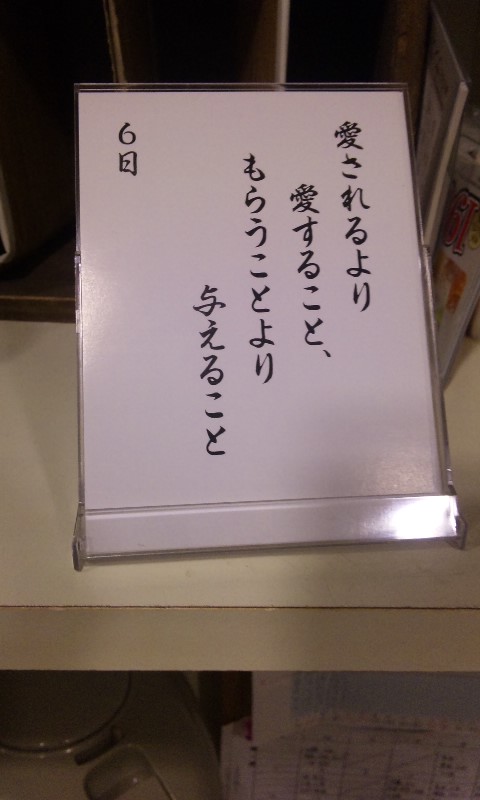 愛されるより
愛すること、
もらうことより
与えること
6日